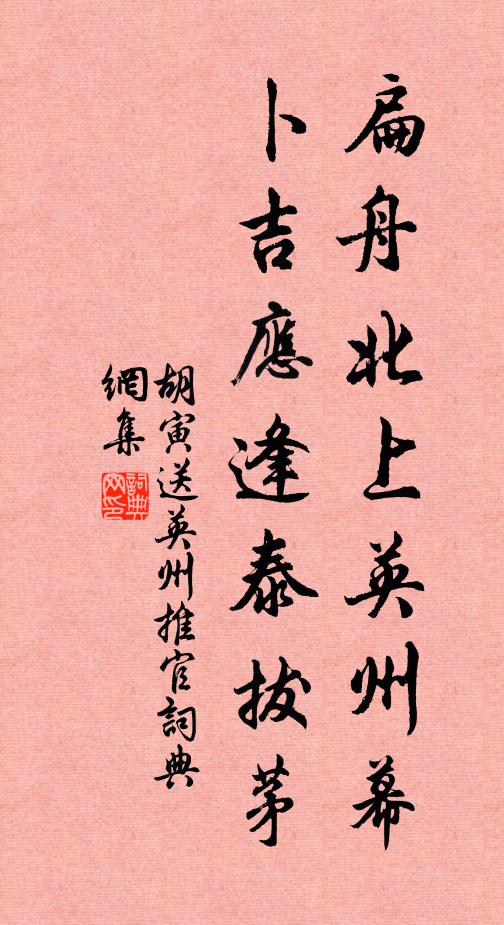 扁舟北上英州幕
卜吉應逢泰拔茅
胡寅送英州推官詞典
網集
詞典网印